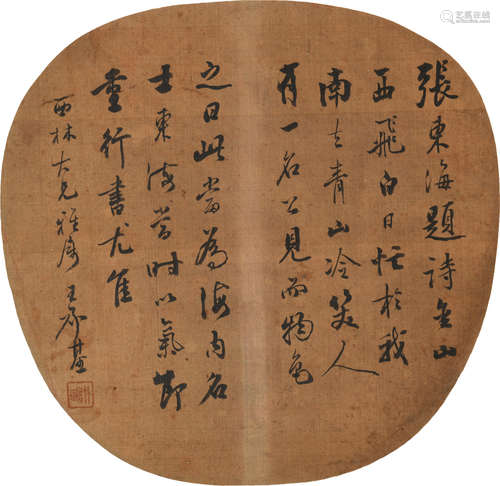 張東海題詩金山
西飛白日忙於我
南去青山冷笑人
有一名公見而物色
之曰此當為海內名
士東海當時以氣節
重行書尤佳
西林大兄雅屬 王承